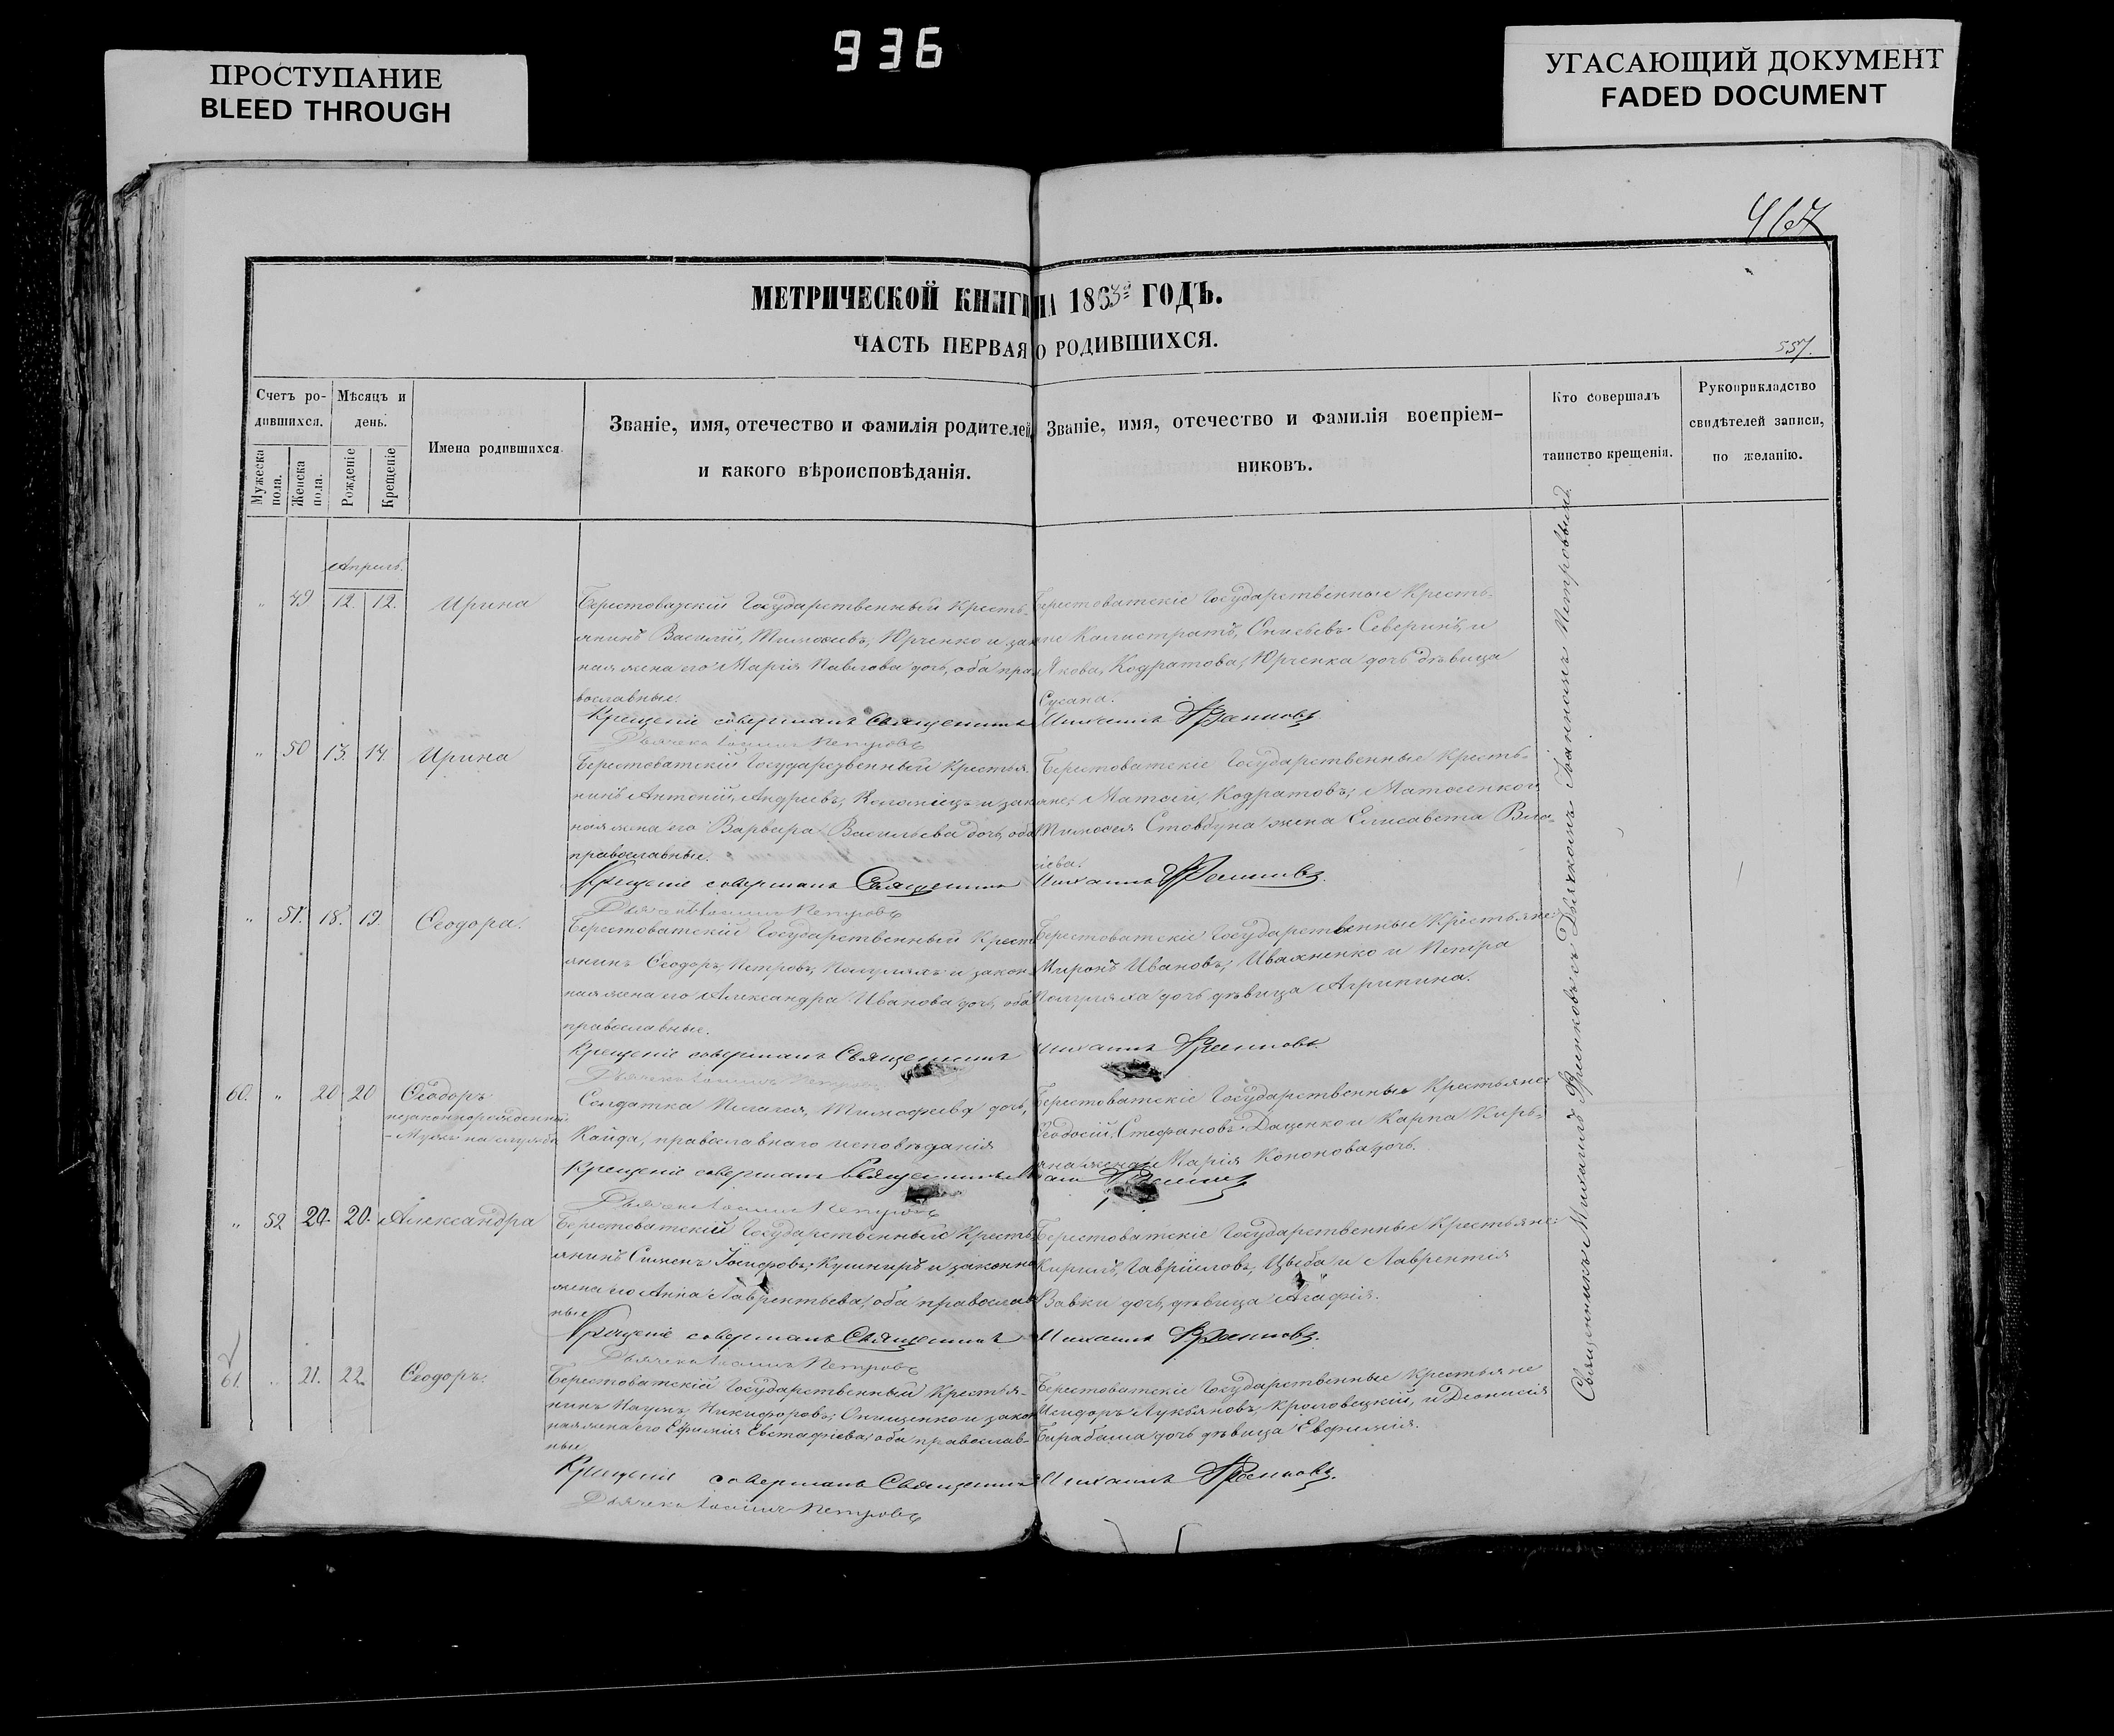 ПРОСТУПАНИЕ
BLEED THROUGH
936
УГАСАЮЩИЙ ДОКУМЕНТ
FADED DOCUMENT
467
МЕТРИЧЕСКОЙ КНИГИ НА 1863й ГОДЪ.
ЧАСТЬ ПЕРВАЯ О РОДИВШИХСЯ.
557.
Счетъ ро-
дившихся.
Мужеска пола.
Женска пола.
Мѣсяцъ и
день.
Рожденіе
Крещеніе
Имена родившихся.
Званіе, имя, отечество и фамилія родителей,
и какого вѣроисповѣданія.
Званіе, имя, отечество и фамилія воспріем-
никовъ.
Кто совершалъ
таинство крещенія.
Рукоприкладство
свидѣтелей записи,
по желанію.
Апрѣль.
" 49 12. 12. Ирина
Берестоватскій Государственный Кресть-
янинъ Василій, Тимоѳеевъ, Юрченко и закон
ная жена его Марія Павлова дочь, оба пра-
вославные.
Берестоватскіе Государственные Кресть-
яне Калистратъ, Севѣринъ, и
Якова, Кодратова, Юрченка дочь дѣвица
Сусана.
Крещеніе совершалъ Священникъ Михаилъ
Дьячекъ Іоаннъ Петровъ
" 50 13. 14. Ирина
Берестоватскій Государственный Крестья-
нинъ Антоній, Андреевъ, Коломіецъ и закон
ная жена его Варвара Васильева дочь, оба
православные.
Берестоватскіе Государственные Кресть-
яне: Матѳей, Кодратовъ, Матвіенко и
Тимоѳея Стовбуна жена Елисавета Вла-
сіева.
Крещеніе совершалъ Священникъ Михаилъ
Дьячекъ Іоаннъ Петровъ
" 51. 18. 19. Ѳеодора.
Берестоватскій Государственный Кресть
янинъ Ѳеодоръ, Петровъ, и закон
ная жена его Александра Иванова дочь, оба
православные.
Берестоватскіе Государственные Крестьяне:
Миронъ Ивановъ, Иваненко и Петра
дочь дѣвица Агрипина.
Крещеніе совершалъ Священникъ Михаилъ
Дьячекъ Іоаннъ Петровъ
60. " 20 20 Ѳеодоръ
незаконнорожденный
- Мужъ на службѣ
Солдатка Пелагея, Тимоѳеева дочь,
Кайда, православнаго исповѣданія
Берестоватскіе Государственные Крестьяне:
Ѳеодосій, Стефановъ, Даценко и Карпа Кирь-
яна жена Марія Кононова дочь.
Крещеніе совершалъ Священникъ
Дьячекъ Іоаннъ Петровъ
" 52 20. 20. Александра
Берестоватскій Государственный Кресть
янинъ Симеонъ Іосифовъ, Кушниръ и законна
жена его Анна Лаврентьева, оба православ
ные
Берестоватскіе Государственные Крестьяне:
Кирилъ, Гавріиловъ, Цыба и Лаврентія
Вовки дочь, дѣвица Агафія.
Крещеніе совершалъ Священникъ Михаилъ
Дьячекъ Іоаннъ Петровъ
61. " 21. 22. Ѳеодоръ.
Берестоватскій Государственный Крестья-
нинъ Наумъ Никифоровъ, Онищенко и закон
ная жена его Ефимія Евстафіева, оба православ-
ные
Берестоватскіе Государственные Крестьяне
Исидоръ Лукьяновъ, Кролевецкій, и Діонисія
Барабаша дочь дѣвица Евфимія.
Крещеніе совершалъ Священникъ Михаилъ
Дьячекъ Іоаннъ Петровъ
Священникъ Михаилъ съ Дьячкомъ Іоанномъ Петровымъ.